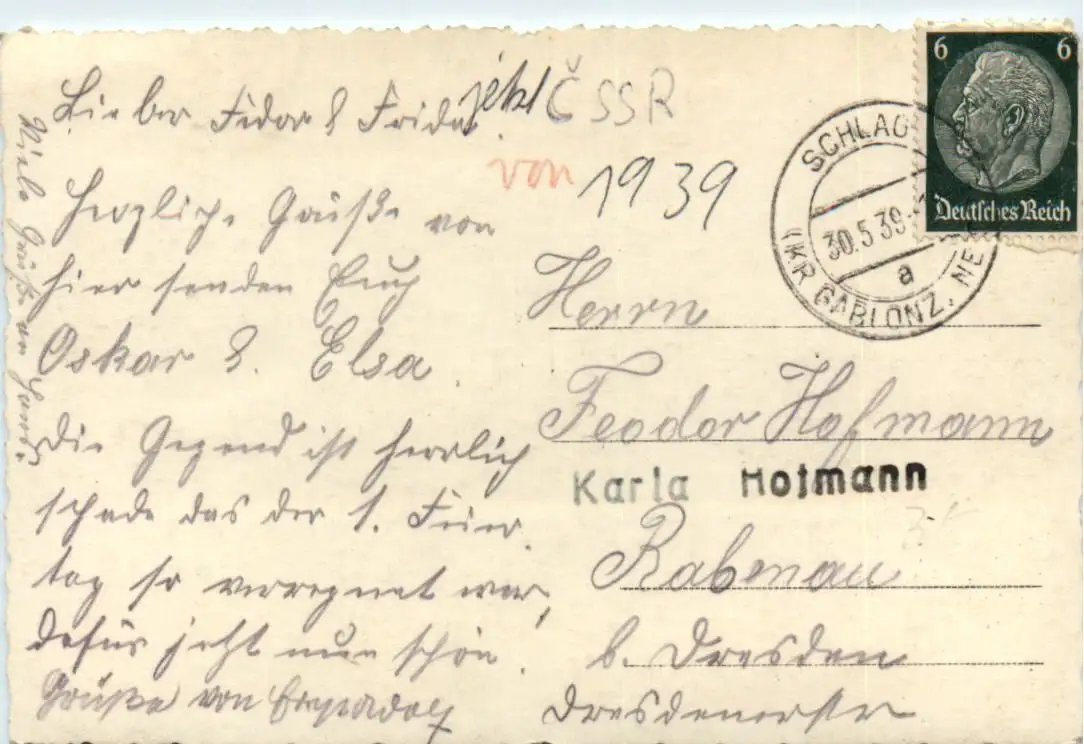 Lieber Fedor & Frida.
jetzt ČSSR
von 1939
Herzliche Grüße von
hier senden Euch
Oskar & Elsa.
Die Gegend ist herrlich
schade das der 1. Feier-
tag so verregnet war,
dafür jetzt nun schön.
Grüße von
Viele Grüße an Hansi.
6 6
Deutsches Reich
SCHLAG
30.5.39
a
(KR GABLONZ, NE
Herrn
Feodor Hofmann
Karla Hofmann
Rabenau
b. Dresden
Dresdenerstr